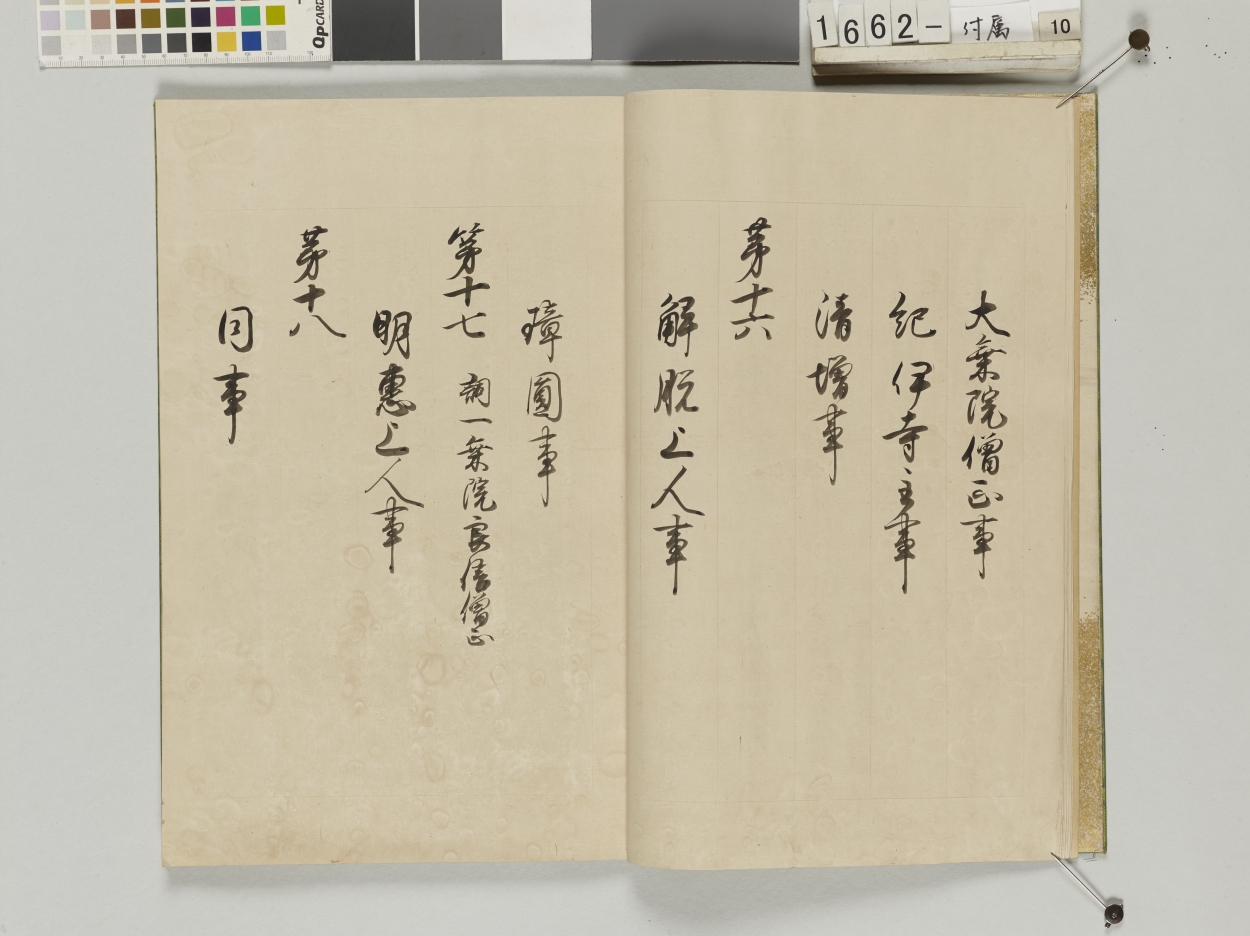 大乗院僧正事
紀伊寺主事
清増事
第十六
解脱上人事
璋圓事
第十七 詞一乗院良信僧正
明惠上人事
第十八
同事
1662-付属 10
QPCARD